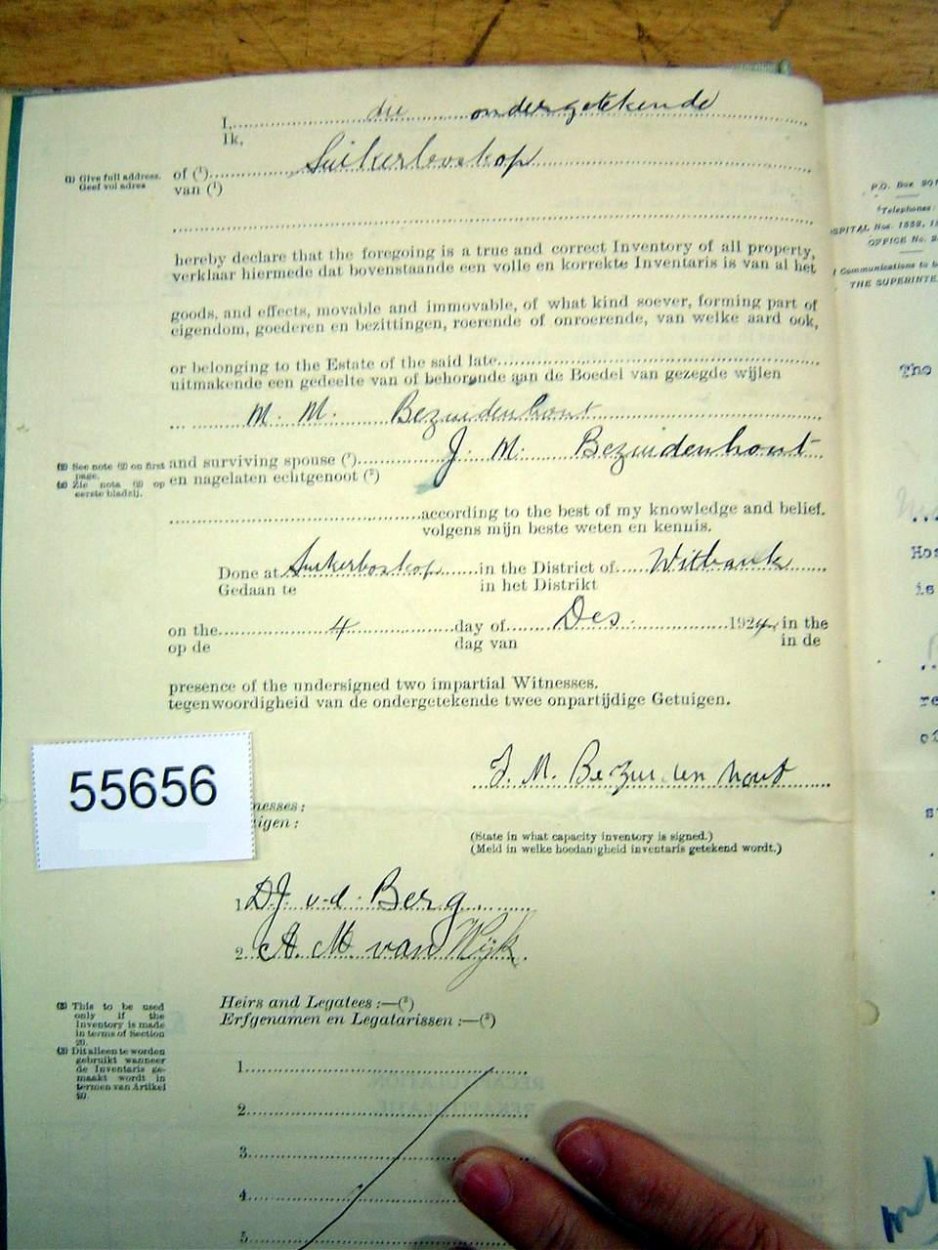 I, die ondergetekende
Ik,
(1) Give full address.
Geef vol adres
of (1) Suikerboskop
van (1)
hereby declare that the foregoing is a true and correct Inventory of all property,
verklaar hiermede dat bovenstaande een volle en korrekte Inventaris is van al het
goods, and effects, movable and immovable, of what kind soever, forming part of
eigendom, goederen en bezittingen, roerende of onroerende, van welke aard ook,
or belonging to the Estate of the said late
uitmakende een gedeelte van of behorende aan de Boedel van gezegde wijlen
M. M. Bezuidenhout
(2) See note (2) on first
page.
(2) Zie nota (2) op
eerste bladzij.
and surviving spouse (2) J. M. Bezuidenhout
en nagelaten echtgenoot (2)
according to the best of my knowledge and belief.
volgens mijn beste weten en kennis.
Done at Suikerboskop in the District of Witbank
Gedaan te in het Distrikt
on the 4 day of Des. 1924 in the
op de dag van in de
presence of the undersigned two impartial Witnesses.
tegenwoordigheid van de ondergetekende twee onpartijdige Getuigen.
J. M. Bezuidenhout
55656
nesses:
igen:
(State in what capacity inventory is signed.)
(Meld in welke hoedanigheid inventaris getekend wordt.)
1 D J v.d. Berg
2 A. M. van Wijk
(3) This to be used
only if the
Inventory is made
in terms of Section
(3) Dit alleen te worden
gebruikt wanneer
de Inventaris ge-
maakt wordt in
termen van Artikel
Heirs and Legatees :—(3)
Erfgenamen en Legatarissen :—(3)
1
2
3
4
5
P.O. Box
Telephones:
OFFICE No.
Communications to
THE SUPERINTE
The
Hos
is
re
of